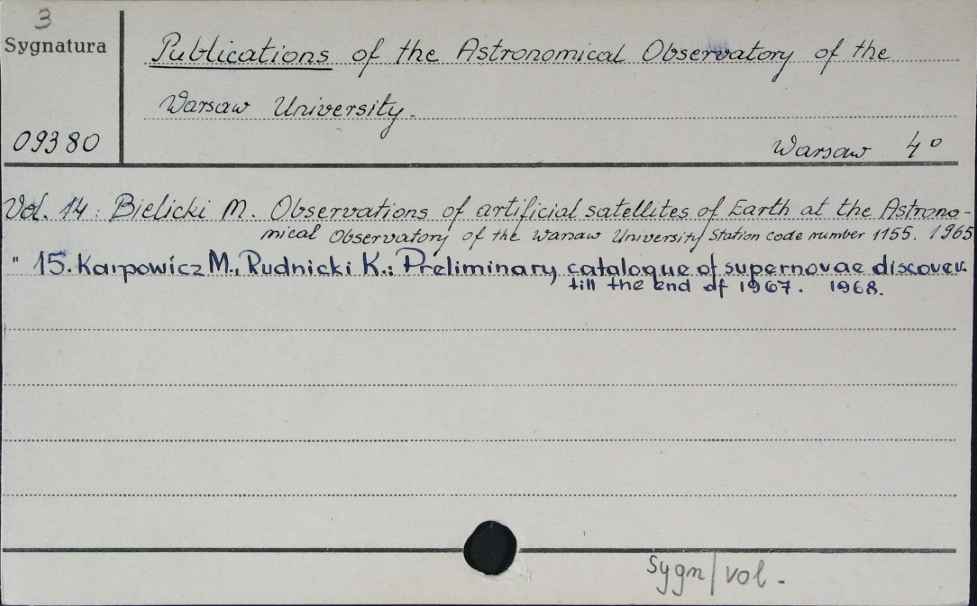 3
Sygnatura
Publications of the Astronomical Observatory of the
Warsaw University.
09380
Warsaw 4°
Vol. 14: Bielicki M. Observations of artificial satellites of Earth at the Astrono-
mical Observatory of the Warsaw University Station code number 1155. 1965
" 15. Karpowicz M., Rudnicki K.: Preliminary catalogue of supernovae discover.
till the end of 1967. 1968.
Sygn/vol.